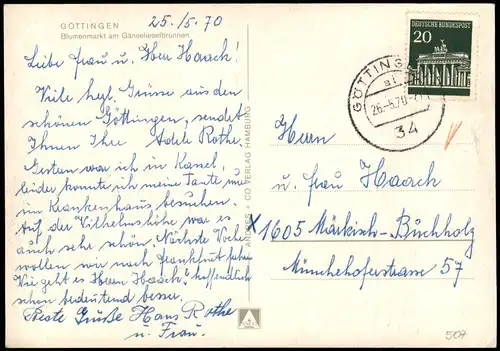 GÖTTINGEN
Blumenmarkt am Gänselieselbrunnen
25./5.70
Liebe Frau u. Herr Haack!
Viele hzgl. Grüsse aus dem
schönen Göttingen, sendet
Ihnen Ihre Adele Rothe.
Gestern war ich in Kassel,
leider konnte ich meine Tante nur
im Krankenhaus besuchen.
Auf der Wilhelmshöhe war es
auch sehr schön. Nächste Woche
wollen wir nach Frankfurt fahren
Wie geht es Herrn Haack? hoffendlich
schon bedeutend besser.
Beste Grüße Hans Rothe
u. Frau.
CO VERLAG HAMBURG
DEUTSCHE BUNDESPOST
20
GÖTTING
26.-5.70
34
Herrn
u. Frau Haack
X 1605 Märkisch-Buchholz
Münchehoferstrasse 57
507